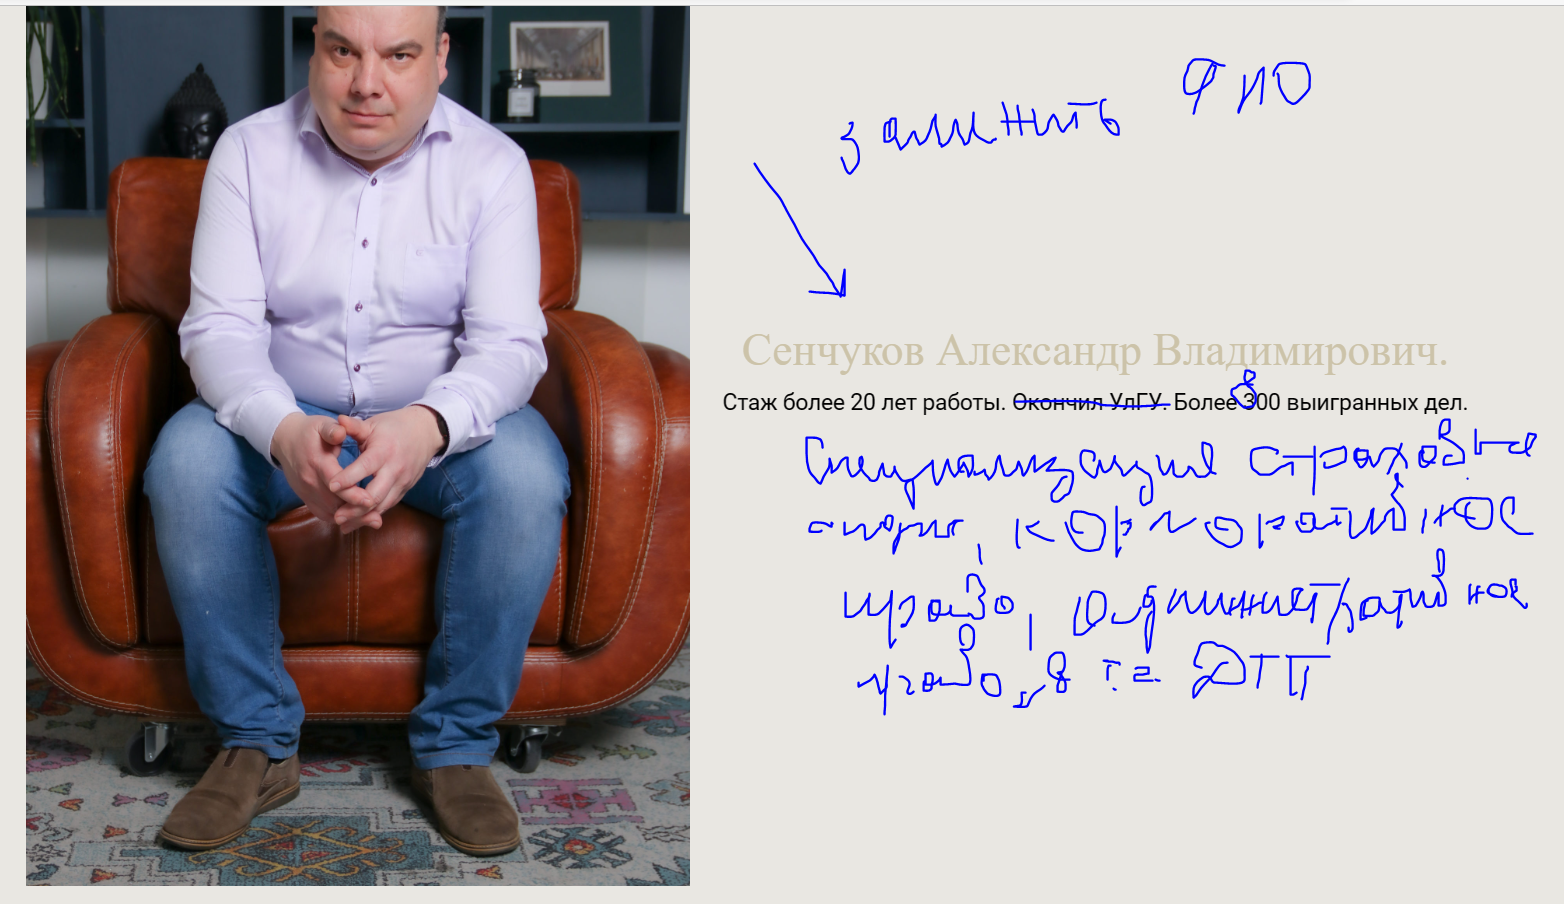 заменить ФИО
Сенчуков Александр Владимирович.
8
Стаж более 20 лет работы. Окончил УлГУ. Более 300 выигранных дел.
Специализация страховые
споры, корпоративное
право, административное
право, в т.ч. ДТП